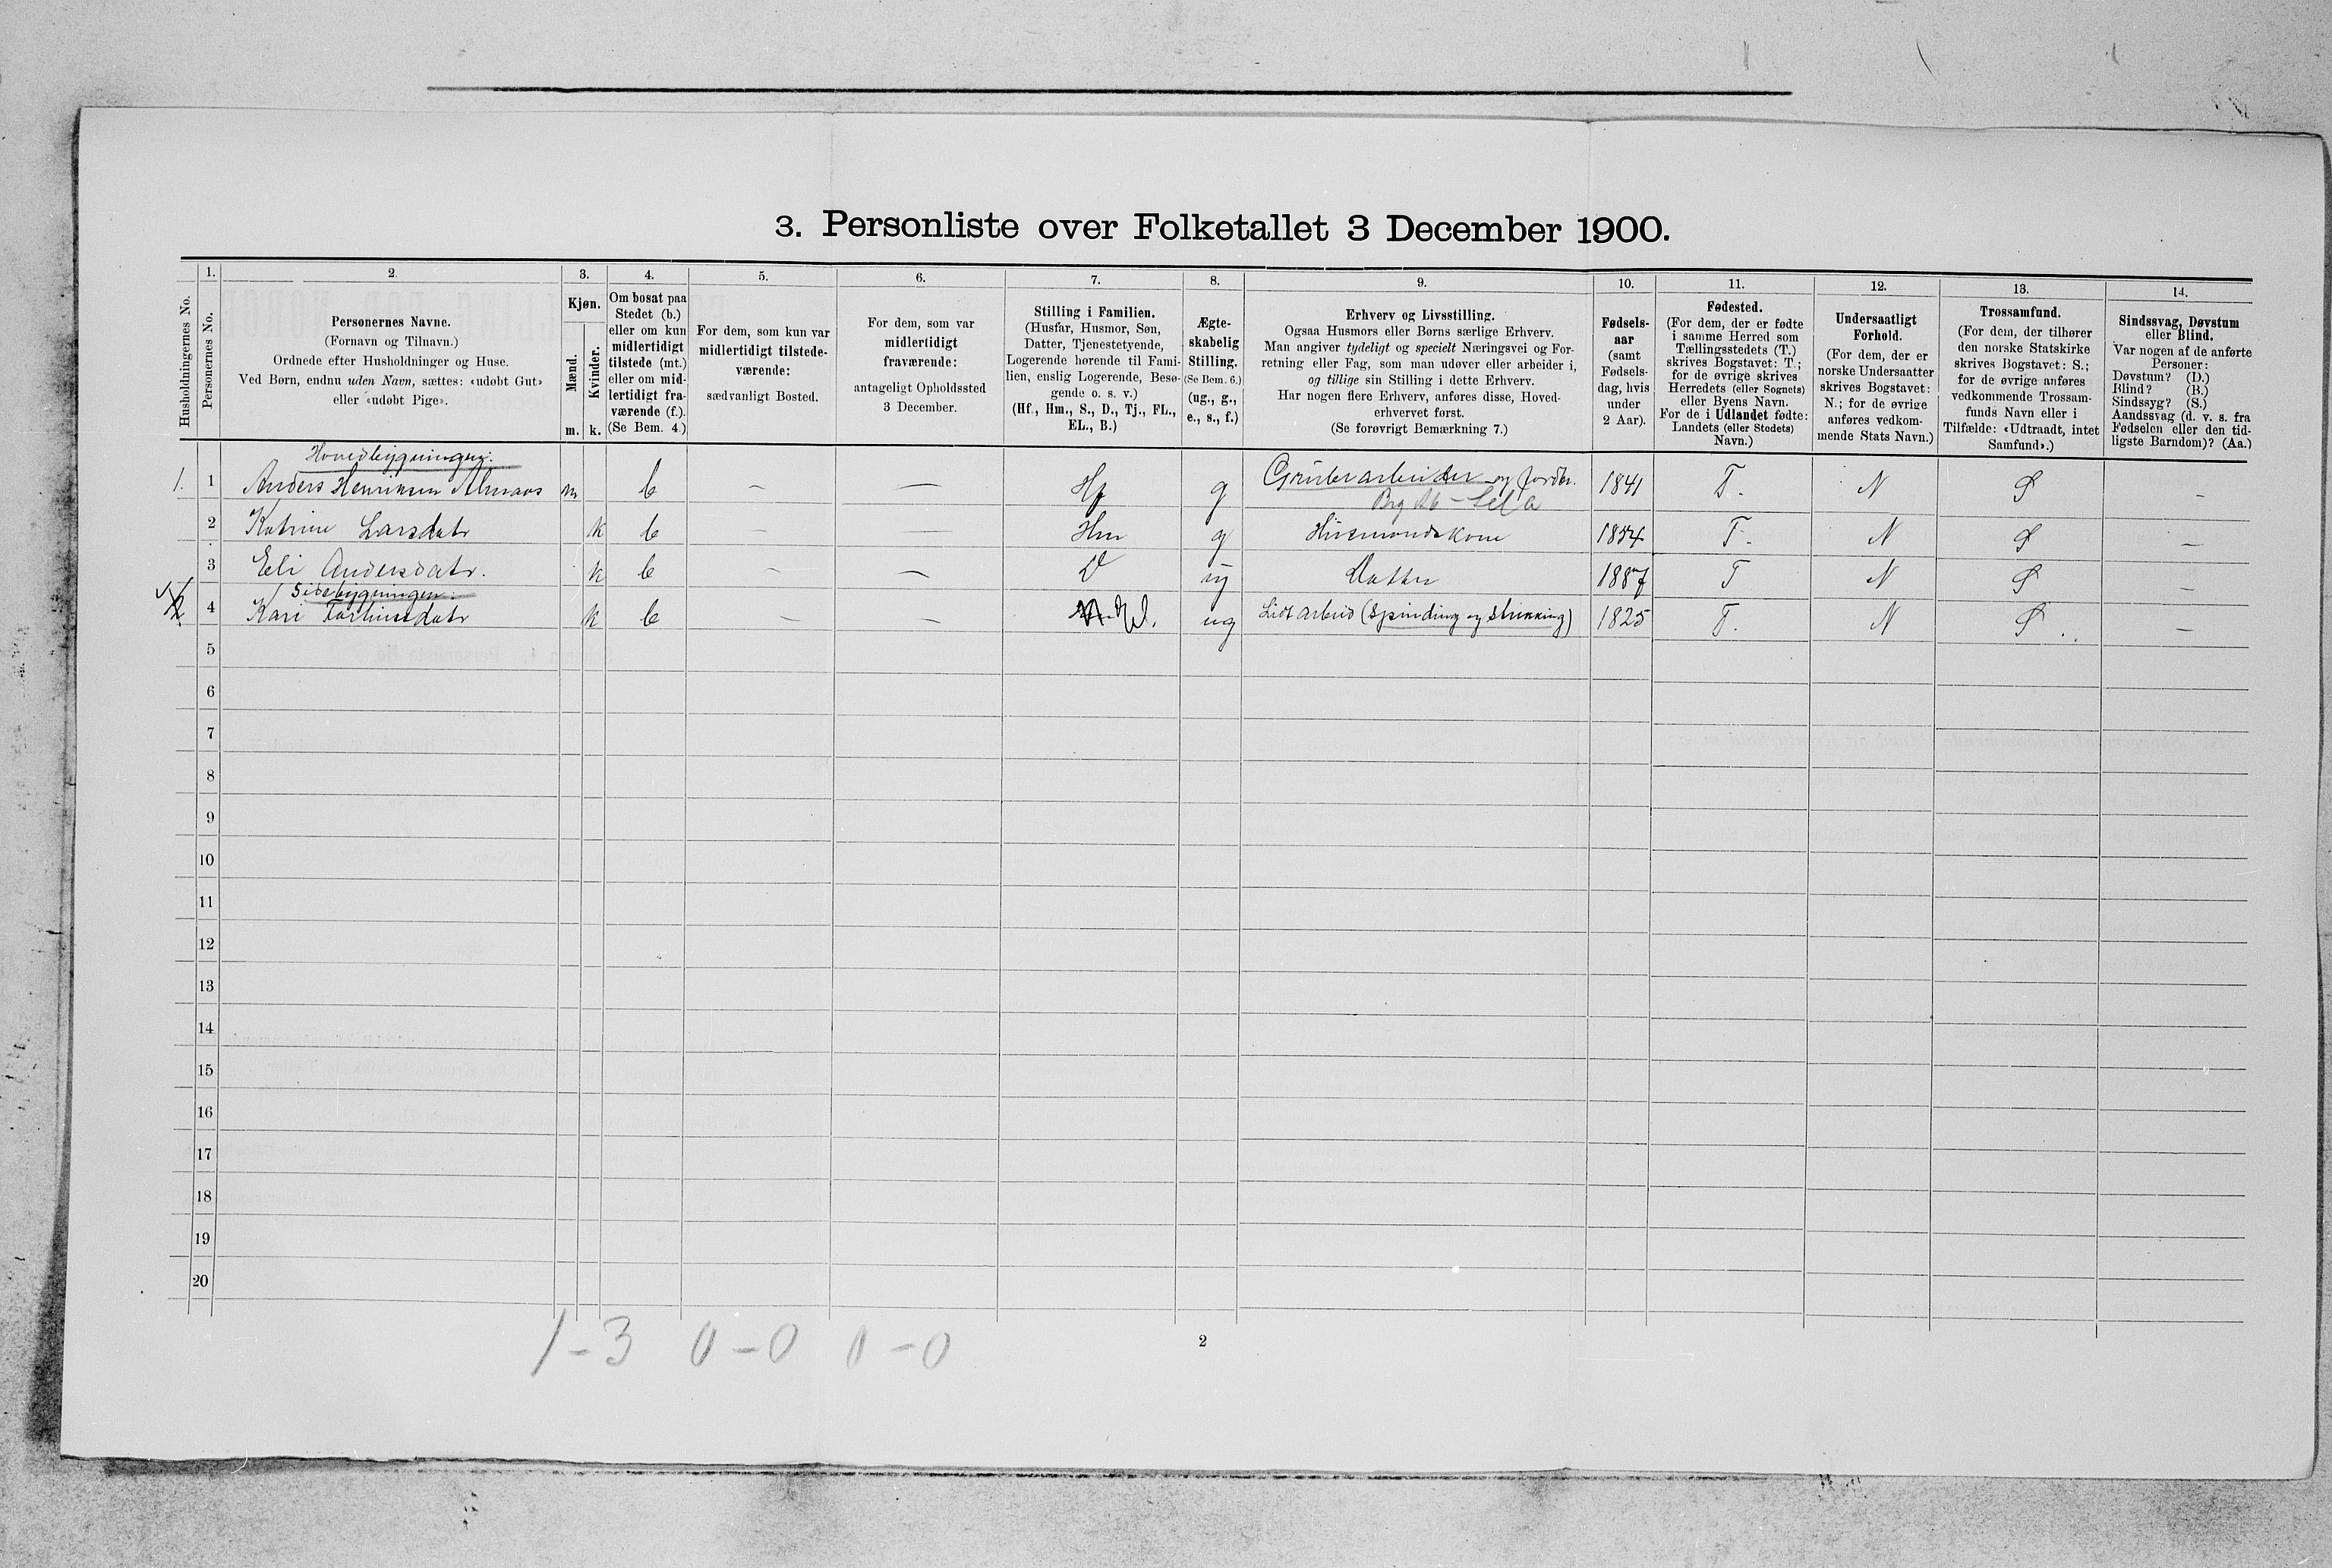 3. Personliste over Folketallet 3 December 1900.
Husholdningernes No.
1.
Personernes No.
2.
Personernes Navne.
(Fornavn og Tilnavn.)
Ordnede efter Husholdninger og Huse.
Ved Børn, endnu uden Navn, sættes: «udøbt Gut»
eller «udøbt Pige».
3.
Kjøn.
Mænd.
Kvinder.
m. k.
4.
Om bosat paa
Stedet (b.)
eller om kun
midlertidigt
tilstede (mt.)
eller om mid-
lertidigt fra-
værende (f.).
(Se Bem. 4.)
5.
For dem, som kun var
midlertidigt tilstede-
værende:
sædvanligt Bosted.
6.
For dem, som var
midlertidigt
fraværende:
antageligt Opholdssted
3 December.
7.
Stilling i Familien.
(Husfar, Husmor, Søn,
Datter, Tjenestetyende,
Logerende hørende til Fami-
lien, enslig Logerende, Besø-
gende o. s. v.)
(Hf., Hm., S., D., Tj., FL.,
EL., B.)
8.
Ægte-
skabelig
Stilling.
(Se Bem. 6.)
(ug., g.,
e., s., f.)
9.
Erhverv og Livsstilling.
Ogsaa Husmors eller Børns særlige Erhverv.
Man angiver tydeligt og specielt Næringsvei og For-
retning eller Fag, som man udøver eller arbeider i,
og tillige sin Stilling i dette Erhverv.
Har nogen flere Erhverv, anføres disse, Hoved-
erhvervet først.
(Se forøvrigt Bemærkning 7.)
10.
Fødsels-
aar
(samt
Fødsels-
dag, hvis
under
2 Aar).
11.
Fødested.
(For dem, der er fødte
i samme Herred som
Tællingsstedets (T.)
skrives Bogstavet: T.;
for de øvrige skrives
Herredets (eller Sognets)
eller Byens Navn.
For de i Udlandet fødte:
Landets (eller Stedets)
Navn.)
12.
Undersaatligt
Forhold.
(For dem, der er
norske Undersaatter
skrives Bogstavet:
N.; for de øvrige
anføres vedkom-
mende Stats Navn.)
13.
Trossamfund.
(For dem, der tilhører
den norske Statskirke
skrives Bogstavet: S.;
for de øvrige anføres
vedkommende Trossam-
funds Navn eller i
Tilfælde: «Udtraadt, intet
Samfund».)
14.
Sindssvag, Døvstum
eller Blind.
Var nogen af de anførte
Personer:
Døvstum? (D.)
Blind? (B.)
Sindssyg? (S.)
Aandssvag (d. v. s. fra
Fødselen eller den tid-
ligste Barndom)? (Aa.)
Hovedbygningen:
1. 1 Anders Henriksen Almaas m b — — Hf g Grubearbeider og jordbr. 1841 T. N S —
2 Katrine Larsdatr k b — — Hm g Husmandskone 1854 T. N S —
3 Eli Andersdatr. k b — — D ug Datter 1887 T N S —
Sidebygningen:
2 4 Kari k b — — El. ug Lidt arbeid (spinding og strikking) 1825 T. N S —
5
6
7
8
9
10
11
12
13
14
15
16
17
18
19
20
1-3 0-0 0-0
2